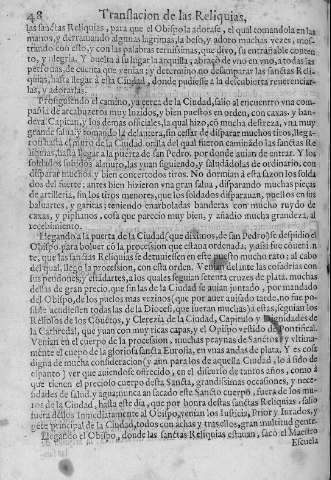 48 Translacion de las Reliquias,
las sanctas Reliquias, para que el Obispo la adorase, el qual tomandola en las
manos, y derramando algunas lagrimas, la beso, y adoro muchas vezes, mos-
trando con esto, y con las palabras ternissimas, que dixo, su entrañable conten
to, y alegria. Y buelta a su lugar la arquilla, abraço de vno en vno, a todas las
personas, de cuenta que venian: y determino no desamparar las sanctas Reli
quias, hasta llegar a esta Ciudad, donde pudiesse a la descubierta reuerenciar-
las, y adorarlas.
Prosiguiendo el camino, ya cerca de la Ciudad, salio al encuentro vna com
pañia de arcabuzeros muy luzidos, y bien puestos en orden, con caxas, y ban-
dera, Capitan, y los demas oficiales, la qual hizo, cõ mucha destreza, vna muy
grande salua; y tomando la delantera, sin cessar de disparar muchos tiros, llega-
ron hasta el muro de la Ciudad orilla del qual fueron caminãdo las sanctas Re
liquias, hasta llegar a la puerta de san Pedro, por donde auian de entrar. Y los
soldados arrimados al muro, las yuan siguiendo, y saludandolas de ordinario, con
disparar muchos y bien concertados tiros. No dormian a esta sazon los solda
dos del fuerte; antes bien hizieron vna gran salua, disparando muchas pieças
de artilleria, sin los tiros menores, que los soldados disparauan, puestos en sus
baluartes, y garitas; teniendo enarboladas banderas con mucho ruydo de
caxas, y piphanos, cosa que parecio muy bien, y añadio mucha grandeza, al
recebimiento.
Llegando a la puerta de la Ciudad (que diximos, de san Pedro) se despidio el
Obispo para boluer cõ la procession que estaua ordenada; y assi fue conueni
te, que las sanctas Reliquias se detuuiessen en este puesto mucho rato; al cabo
del qual, llego la procession, con esta orden. Venian delante las cofadrias con
sus pendones, y estãdartes, a los quales seguian setenta cruzes de plata, muchas
dellas de gran precio, que sin las de la Ciudad se auian juntado, por mandado
del Obispo, de los pueblos mas vezinos (que por auer auisado tarde, no fue pos-
sible acudiessen todas las de la Diocesi, que fueran muchas) a estas, seguian los
Religiosos de los Conuẽtos, y Clerezia de la Ciudad, Capitulo y Dignidades
de la Cathedral, que yuan con muy ricas capas, y el Obispo vestido de Pontifical.
Venian en el cuerpo de la procession, muchas peaynas de Sanctos y vltima-
mente el cuerpo de la gloriosa sancta Eurosia, en vnas andas de plata. Y es cosa
digna de mucha consideracion (y aun para los de aquella Ciudad, lo a sido de
espanto) ver que auiendose offrecido, en el discurso de tantos años, como à
que tienen el precioso cuerpo desta Sancta, grandissimas occasiones, y nece-
sidades de salud, y agua; nunca an sacado este Sancto cuerpo, fuera de los mu-
ros de la Ciudad, hasta este dia, que por honra destas sanctas Reliquias, salio
fuera dellos. Immediatamente al Obispo, venian los Iusticia, Prior y Iurados, y
gente principal de la Ciudad, todos con achas y trasellos, gran multitud gente.
Llegando el Obispo, donde las sanctas Reliquias estauan, sacò el Maestro
Escuela